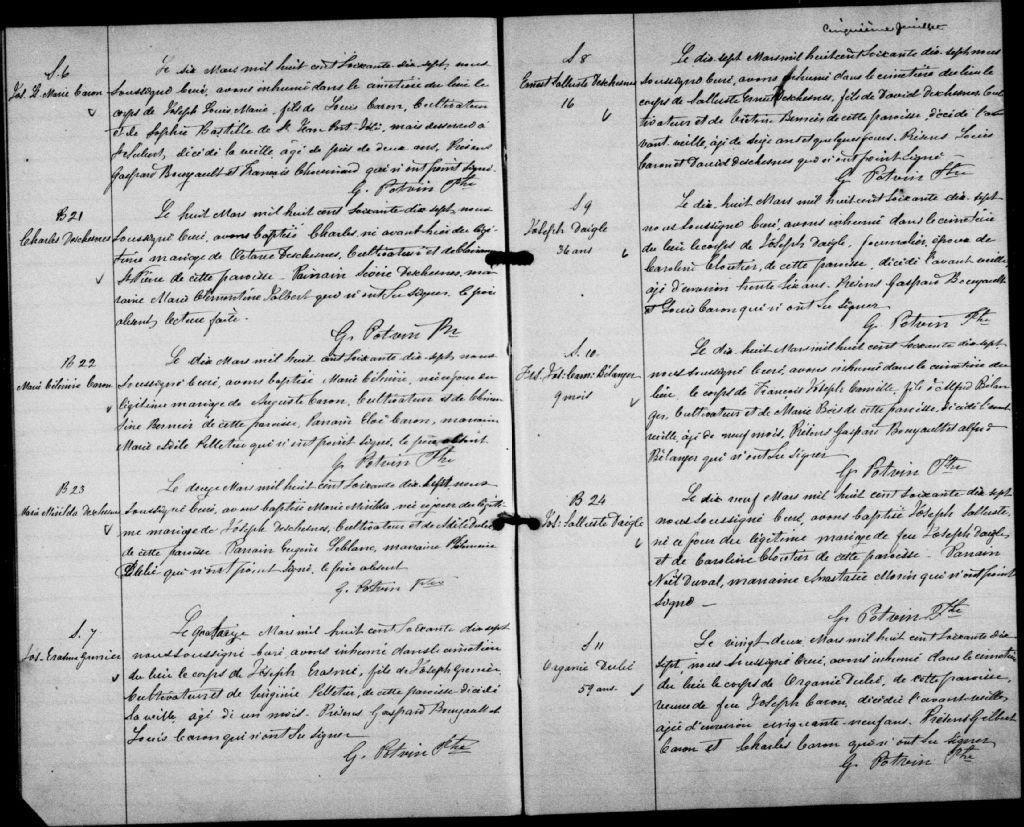 S. 6
Jos. L. Marie Caron
Le six Mars mil huit cent soixante dix-sept, nous
soussigné Curé, avons inhumé dans le cimetière du lieu le
corps de Joseph Louis Marie, fils de Louis Caron, Cultivateur
et de Sophie de St Jean Port-Joli, mais desservi à
, décédé la veille, âgé de près de deux ans. Présens
Gaspard Bourgault et François Chouinard qui n'ont point signé.
G. Potvin Ptre
B 21
Charles Deschesnes
Le huit Mars mil huit cent soixante-dix-sept, nous
soussigné Curé, avons baptisé Charles, né avant-hier du légi-
time mariage de Octave Deschesnes, Cultivateur et de
St Pierre de cette paroisse. Parrain Deschesnes, mar-
raine Marie Clémentine Jalbert qui n'ont su signer, le père
absent, lecture faite.
G. Potvin Ptre
B 22
Marie Caron
Le dix Mars mil huit cent soixante dix-sept, nous
soussigné Curé, avons baptisé Marie , née ce jour du
légitime mariage de Auguste Caron, Cultivateur et de Clémen-
tine Bernier de cette paroisse, Parrain Eloi Caron, marraine
Marie Adèle Pelletier qui n'ont point signé, le père absent
G. Potvin Ptre
B 23
Marie Deschesnes
Le douze Mars mil huit cent soixante dix-sept nous
soussigné Curé, avons baptisé Marie , née ce jour du légiti-
me mariage de Joseph Deschesnes, Cultivateur et de Adèle Dubé
de cette paroisse. Parrain Eugène Leblanc, marraine Philomène
qui n'ont point signé, le père absent
G. Potvin Ptre
S. 7
Jos. Erasme Grenier
Le quatorze Mars mil huit cent soixante dix-sept
nous soussigné Curé avons inhumé dans le cimetière
du lieu le corps de Joseph Erasme, fils de Joseph Grenier
Cultivateur et de Virginie Pelletier, de cette paroisse décédé
la veille, âgé de un mois. Présens Gaspard Bourgault et
Louis Caron qui n'ont su signer
G. Potvin Ptre
Cinquième feuillet
S 8
Ernest Salluste Deschesnes
16
Le dix-sept Mars mil huit cent soixante dix-sept, nous
soussigné Curé, avons inhumé dans le cimetière du lieu le
corps de Salluste Ernest Deschesnes, fils de David Deschesnes, Cul-
tivateur et de Bernier de cette paroisse, décédé l'a-
vant veille, âgé de seize ans et quelques jours. Présens Louis
Caron et David Deschesnes qui n'ont point signé
G. Potvin Ptre
S 9
Joseph Daigle
36 ans
Le dix-huit Mars mil huit cent soixante dix-sept
nous soussigné Curé, avons inhumé dans le cimetière
du lieu le corps de Joseph Daigle, journalier, époux de
Caroline Cloutier, de cette paroisse, décédé l'avant veille
âgé d'environ trente six ans. Présens Gaspard Bourgault
et Louis Caron qui n'ont su signer
G. Potvin Ptre
S. 10
Frs. Jos. Cam: Bélanger
9 mois
Le dix-huit Mars mil huit cent soixante dix-sept
nous soussigné Curé, avons inhumé dans le cimetière du
lieu, le corps de François Joseph Camille, fils d'Alfred Bélan-
ger, Cultivateur et de Marie Bois de cette paroisse, décédé l'avant
veille, âgé de neuf mois, Présens Gaspard Bourgault et Alfred
Bélanger qui n'ont su signer
G. Potvin Ptre
B 24
Jos: Salluste Daigle
Le dix neuf Mars mil huit cent soixante dix-sept
nous soussigné Curé, avons baptisé Joseph Salluste,
né ce jour du légitime mariage de feu Joseph Daigle,
et de Caroline Cloutier de cette paroisse - Parrain
Noël Duval, marraine Anastasie Morin qui n'ont point
signé -
G. Potvin Ptre
S 11
Organie Dubé
59 ans
Le vingt deux Mars mil huit cent soixante dix-
sept, nous soussigné Curé, avons inhumé dans le cimetière
du lieu le corps de Organie Dubé, de cette paroisse,
veuve de feu Joseph Caron, décédée l'avant-veille,
âgée d'environ cinquante-neuf ans. Présens Gilbert
Caron et Charles Caron qui n'ont su signer
G. Potvin Ptre